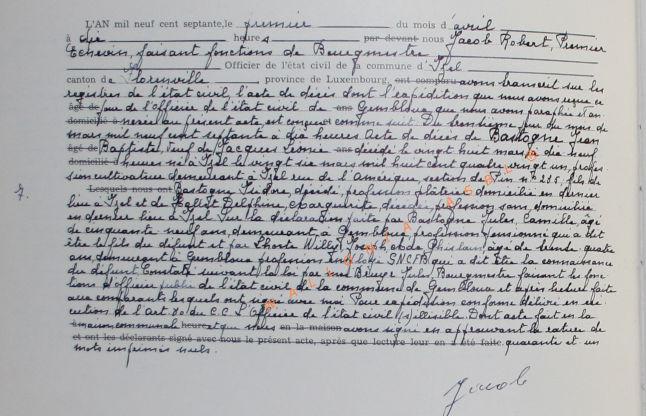 L'AN mil neuf cent septante, le premier du mois d'avril
à dix heures par devant nous Jacob Robert, Premier
Echevin, faisant fonctions de Bourgmestre
Officier de l'état civil de la commune d'Izel
canton de Florenville, province de Luxembourg, ont comparu avons transcrit sur les
registres de l'état civil, l'acte de décès dont l'expédition que nous avons reçue ce
âgé de jour de l'Officier de l'état civil de ans Gembloux que nous avons paraphé et an-
domicilié à nexée au présent acte, est conçue comme suit. Du trentième jour du mois de
mars mil neuf cent septante à dix heures Acte de décès de Bastogne Jean
âgé de Baptiste, veuf de Jacques Léonie ans décédé le vingt huit mars à dix neuf
domicilié à heures né à Izel le vingt six mars mil huit cent quatre vingt un, profes-
sion cultivateur demeurant à Izel rue de l'Amérique, section de Pin n° 235, fils de
7. Lesquels nous ont Bastogne Isidore, décédé, profession plâtrier domicilié en dernier
lieu à Izel et de Delphine, Marguerite, décédée, profession sans, domiciliée
en dernier lieu à Izel Sur la déclaration faite par Bastogne Jules, Camille, âgé
de cinquante neuf ans, demeurant à Gembloux profession pensionné qui a dit
être le fils du défunt et par Lhoste Willy, Joseph, Ghislain, âgé de trente quatre
ans, demeurant à Gembloux profession Employé SNCFB qui a dit être la connaissance
du défunt Constaté suivant la loi par moi Jules, Bourgmestre faisant les fonc-
tions d'Officier public de l'état civil de la commune de Gembloux et après lecture faite
aux comparants lesquels ont signé avec moi Pour expédition conforme délivrée en exé-
cution de l'Art 80 du C.C. L'Officier de l'état civil (s) illisible. Dont acte fait en la
maison communale heure et que nous en la maison avons signé en approuvant la rature de
et ont les déclarants signé avec nous le présent acte, après que lecture leur en a été faite. quarante et un
mots imprimés nuls.
Jacob